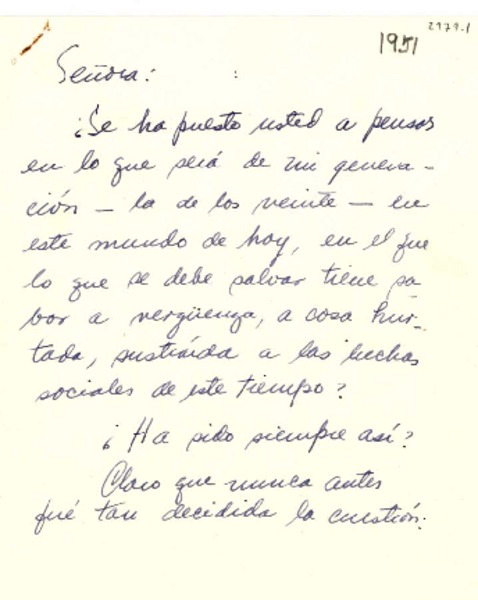 2979.1
1951
Señora: :
¿Se ha puesto usted a pensar
en lo que será de mi genera-
ción — la de los veinte — en
este mundo de hoy, en el que
lo que se debe salvar tiene sa
bor a vergüenza, a cosa hur-
tada, sustraída a las luchas
sociales de este tiempo?
¿Ha sido siempre así?
Claro que nunca antes
fué tan decidida la cuestión.